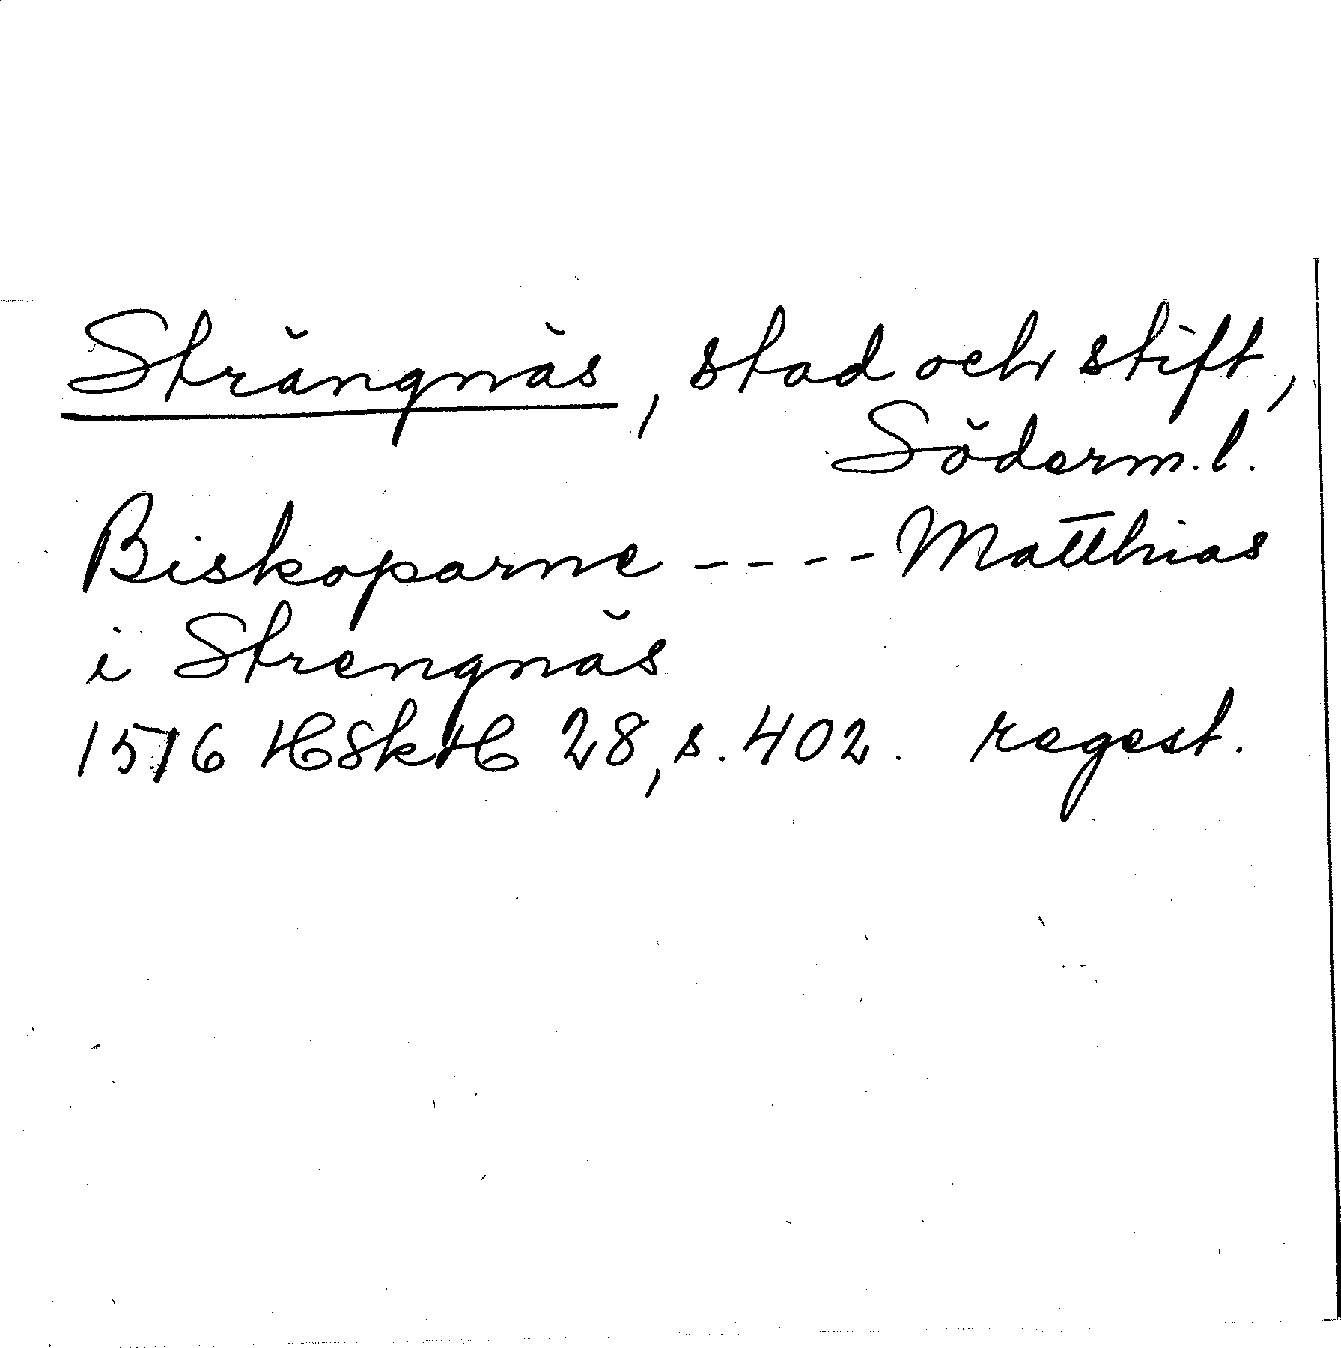 Strängnäs, stad och stift,
Söderm.l.
Biskoparne ---- Matthias
i Strengnäs
1516 HSkH 28, s. 402. regest.